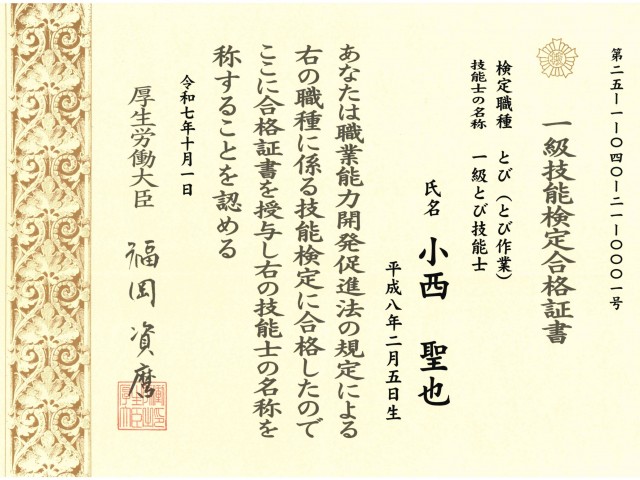 第二五―一―〇四〇―二一―〇〇〇一号
一級技能検定合格証書
検定職種 とび(とび作業)
技能士の名称 一級とび技能士
氏名 小西 聖也
平成八年二月五日生
あなたは職業能力開発促進法の規定による
右の職種に係る技能検定に合格したので
ここに合格証書を授与し右の技能士の名称を
称することを認める
令和七年十月一日
厚生労働大臣 福岡 資麿